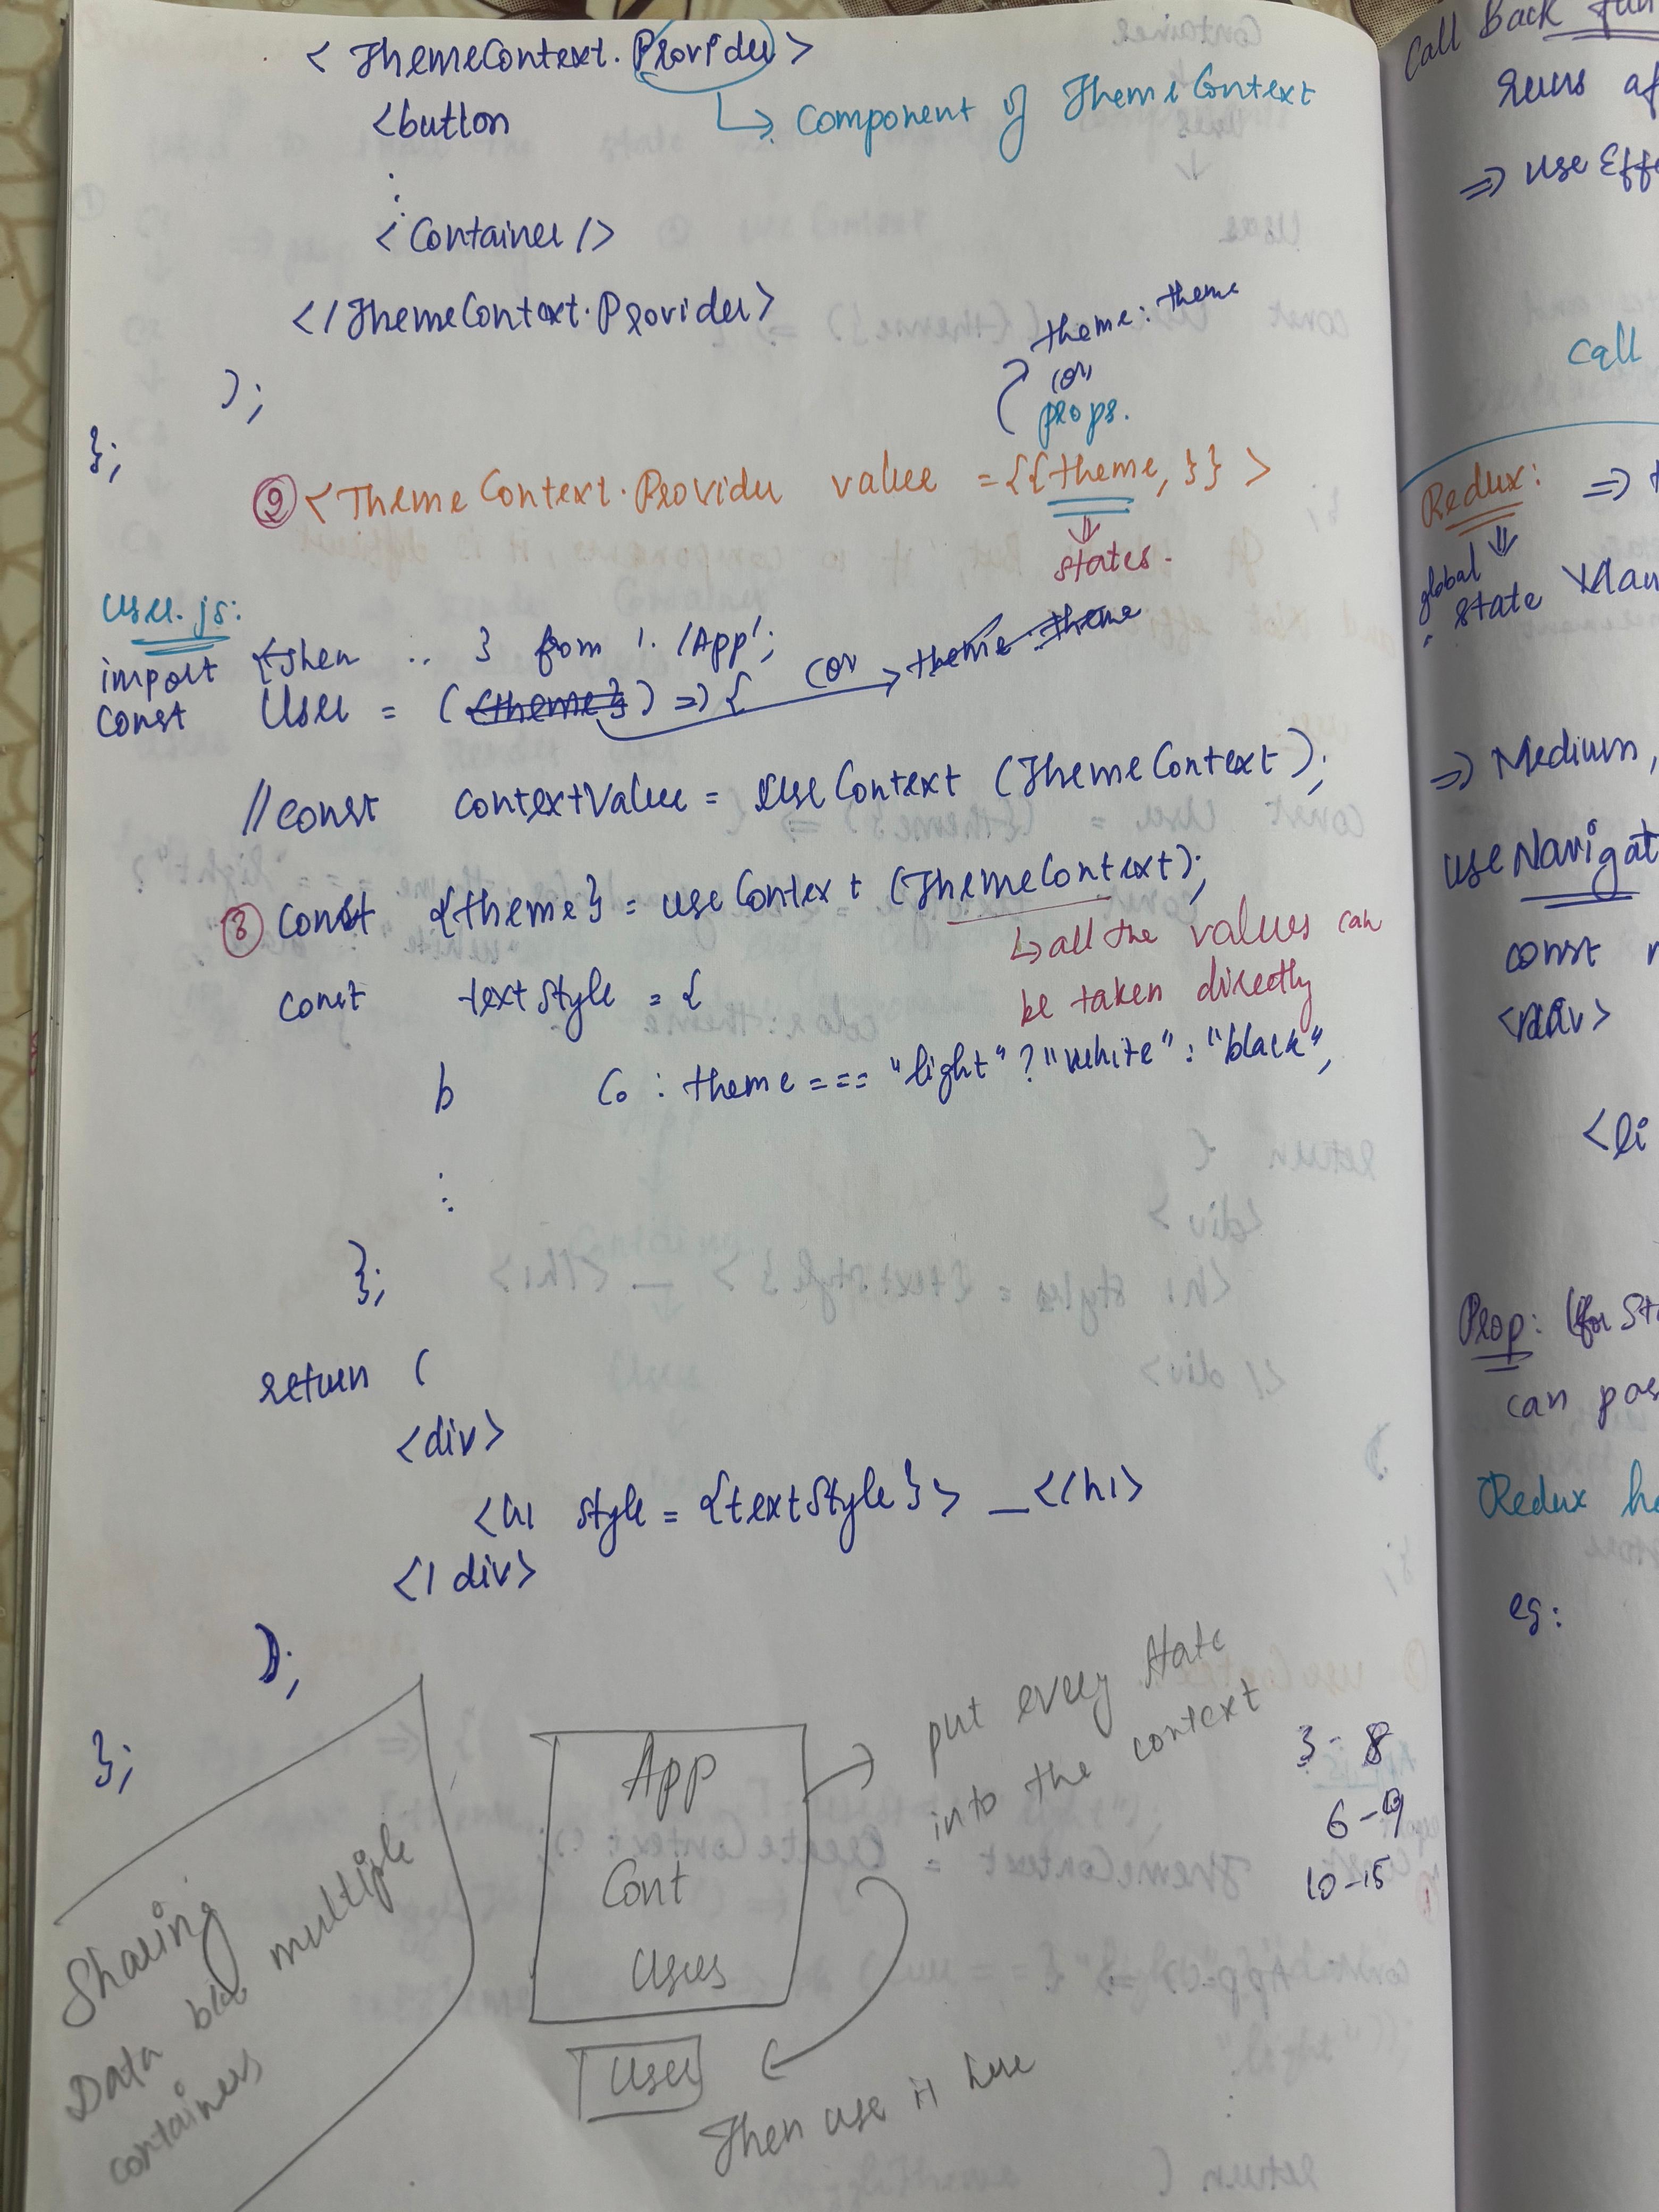 < ThemeContext.Provider >
↳ Component of ThemeContext
<button
⋮
<Container/>
</ThemeContext.Provider>
);
};
theme: theme
(or)
props.
② <ThemeContext.Provider value ={{theme, }} >
⇓
states.
User.js:
import {Them .. } from './App';
const User = ({theme}) => { (or → theme: theme
//const contextValue = useContext (ThemeContext);
③ const {theme} = useContext (ThemeContext);
↳ all the values can
be taken directly
const textStyle = {
b Co : theme === "light" ? "white" : "black",
⋮
};
return (
<div>
<h1 style = {textStyle}> _ </h1>
</div>
);
};
Sharing
Data b/w multiple
containers
App
Cont
Users
User
put every state
into the context
Then use it here
3 - 8
6 - 9
10 - 15
Call Back fun
Runs af
=> use Effe
Call
Redux: =>
global
state Man
=> Medium,
useNavigat
const
<div>
<li
Prop: (for Sta
can pas
Redux ha
eg: